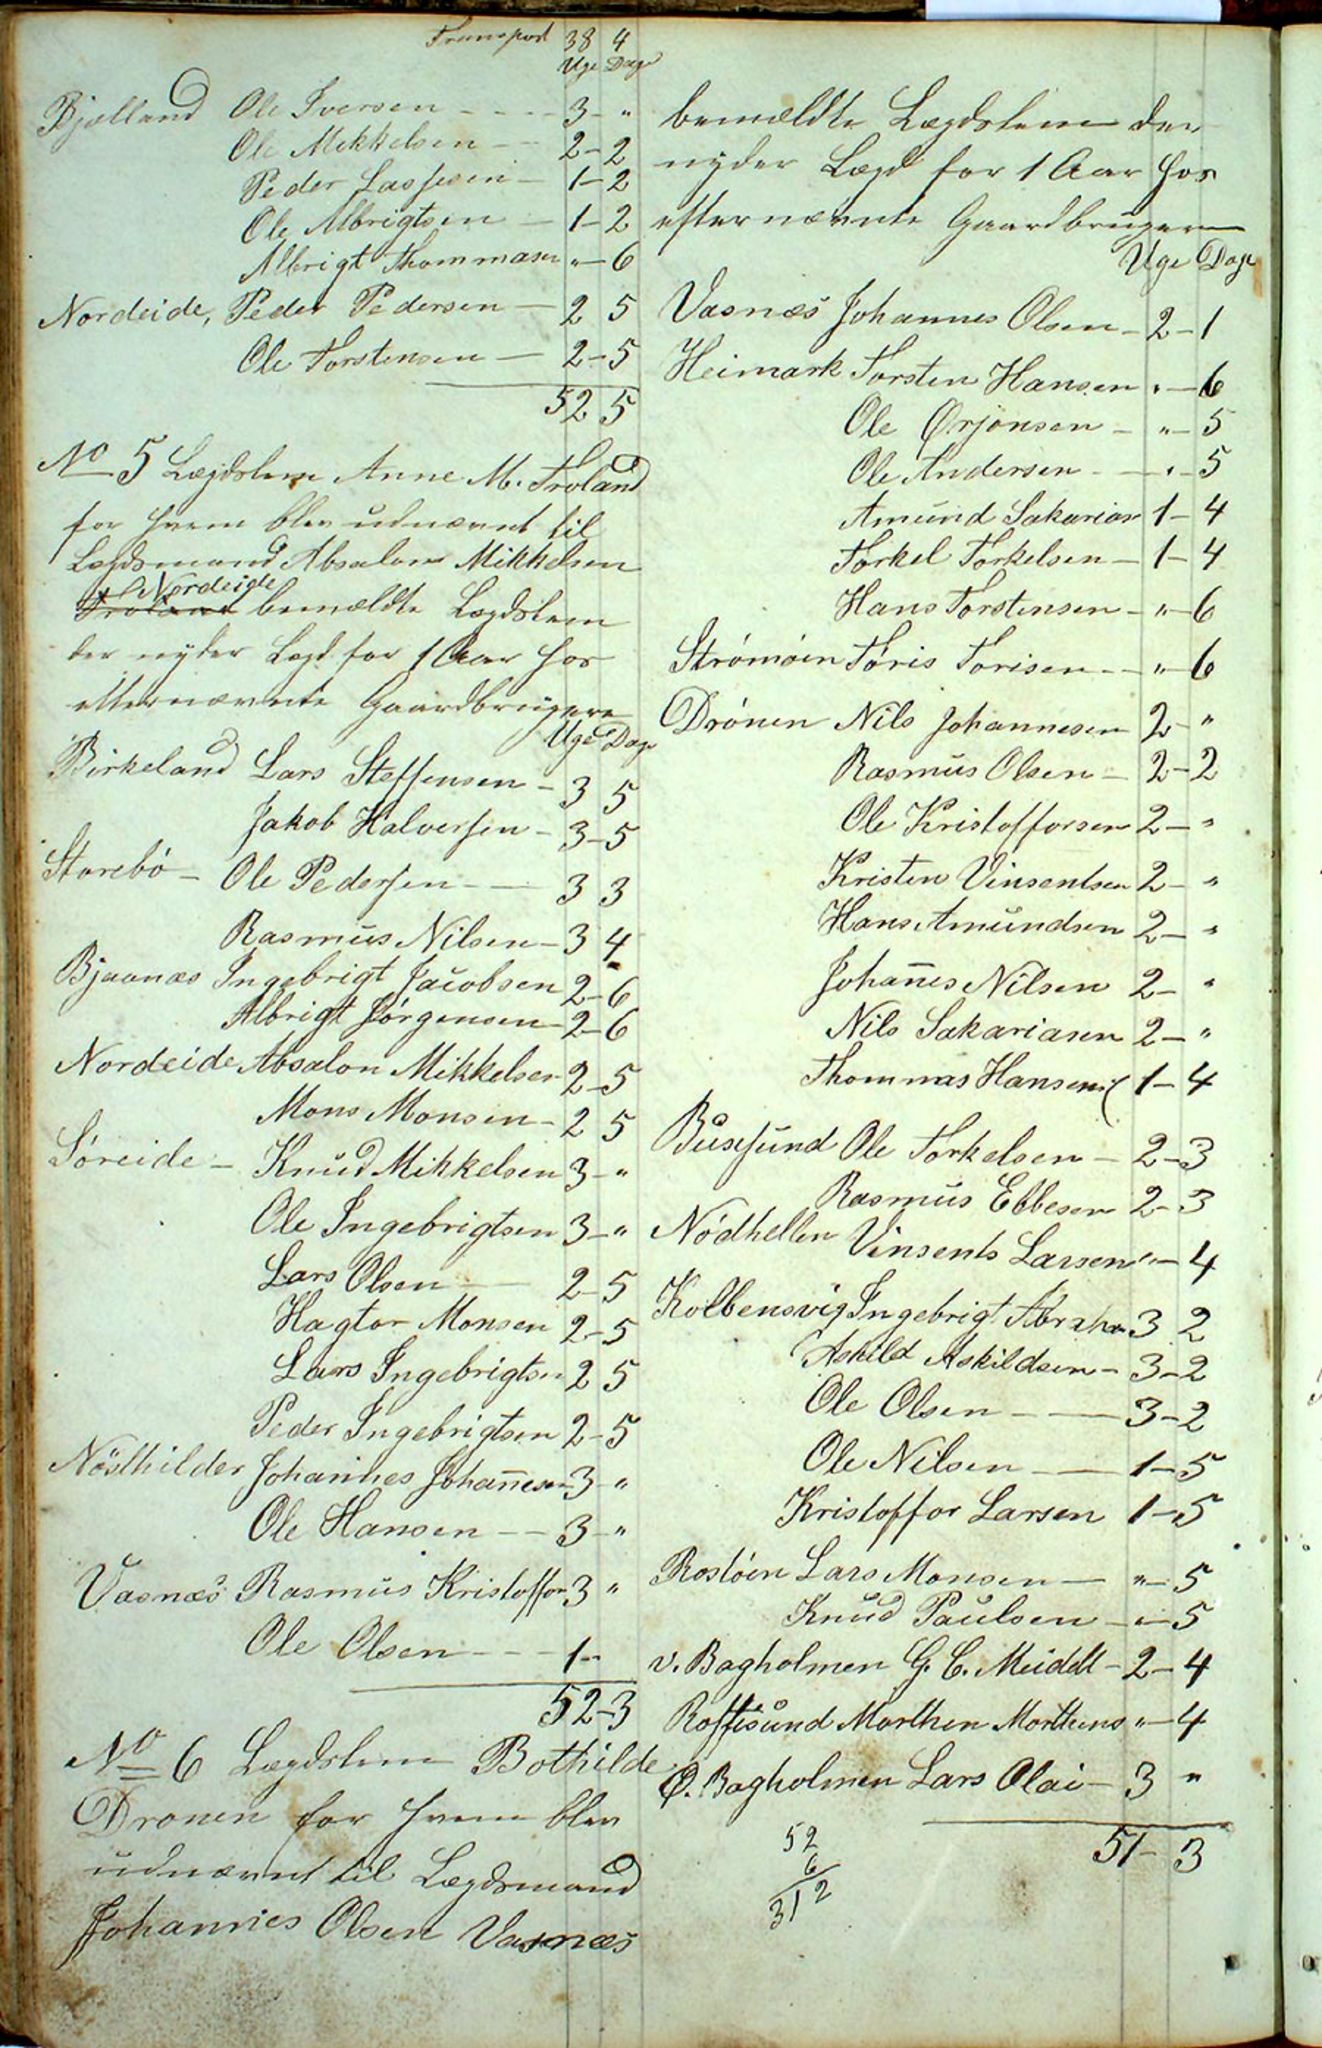 Transport 38 4
Uge Dage
Bjælland Ole Iversen - - - - 3 - "
Ole Mikkelsen - - 2 - 2
Peder Lassesen - 1 - 2
Ole Albrigtsen - 1 - 2
Albrigt Thommasen " - 6
Nordeide, Peder Pedersen - 2 5
Ole Torstensen - 2 - 5
52 5
No 5 Lægdslem Anne M. Troland
for hvem blev udnævnt til
Lægdsmand Absalon Mikkelsen
Nordeide
Troland bemældte Lægdslem
der nyder Lægd for 1 Aar hos
efternævnte Gaardbrugere
Uge Dage
Birkeland Lars Steffensen - 3 5
Jakob Halversen - 3 - 5
Storebö - Ole Pedersen - - 3 3
Rasmus Nilsen - 3 4
Bjaanæs Ingebrigt Jacobsen 2 - 6
Albrigt Jørgensen - 2 - 6
Nordeide Absalon Mikkelsen 2 - 5
Mons Monsen - 2 5
Söreide - Knud Mikkelsen 3 - "
Ole Ingebrigtsen 3 - "
Lars Olsen - - 2 - 5
Hagtor Monsen 2 - 5
Lars Ingebrigtsen 2 5
Peder Ingebrigtsen 2 - 5
Nösthilder Johannes Johan̄esen 3 "
Ole Hansen - - 3 - "
Vasnæs Rasmus Kristoffor 3 "
Ole Olsen - - - 1 - "
52 - 3
No 6 Lægdslem Bothilde
Dronen for hvem blev
udnævnt til Lægdsmand
Johannes Olsen Vasnæs
bemældte Lægdslem der
nyder Lægd for 1 Aar hos
efternævnte Gaardbrugere
Uge Dage
Vasnæs Johannes Olsen - 2 - 1
Heimark Torsten Hansen " - 6
Ole Ørjansen - " - 5
Ole Andersen - - " - 5
Amund Sakarias 1 - 4
Torkel Torkelsen - 1 - 4
Hans Torstensen - " - 6
Strömöen Töris Torisen - - " - 6
Drönen Nils Johannesen 2 - "
Rasmus Olsen - 2 - 2
Ole Kristofforsen 2 - "
Kristen Vinsentsen 2 - "
Hans Amundsen 2 - "
Johan̄es Nilsen 2 - "
Nils Sakariasen 2 - "
Thommas Hansen 1 - 4
Busesund Ole Torkelsen - 2 - 3
Rasmus Ebbesen 2 - 3
Nödhellen Vinsents Larsen " - 4
Kolbensvig Ingebrigt Abraha 3 2
Askild Askildsen - 3 - 2
Ole Olsen - - 3 - 2
Ole Nilsen - - 1 - 5
Kristoffor Larsen 1 - 5
Rostöen Lars Monsen - " - 5
Knud Paulsen - " - 5
v. Bagholmen G. C. Meidell - 2 - 4
Roffesund Morthen Morthens " - 4
Ø. Bagholmen Lars Olai - 3 "
51 - 3
52
6
312